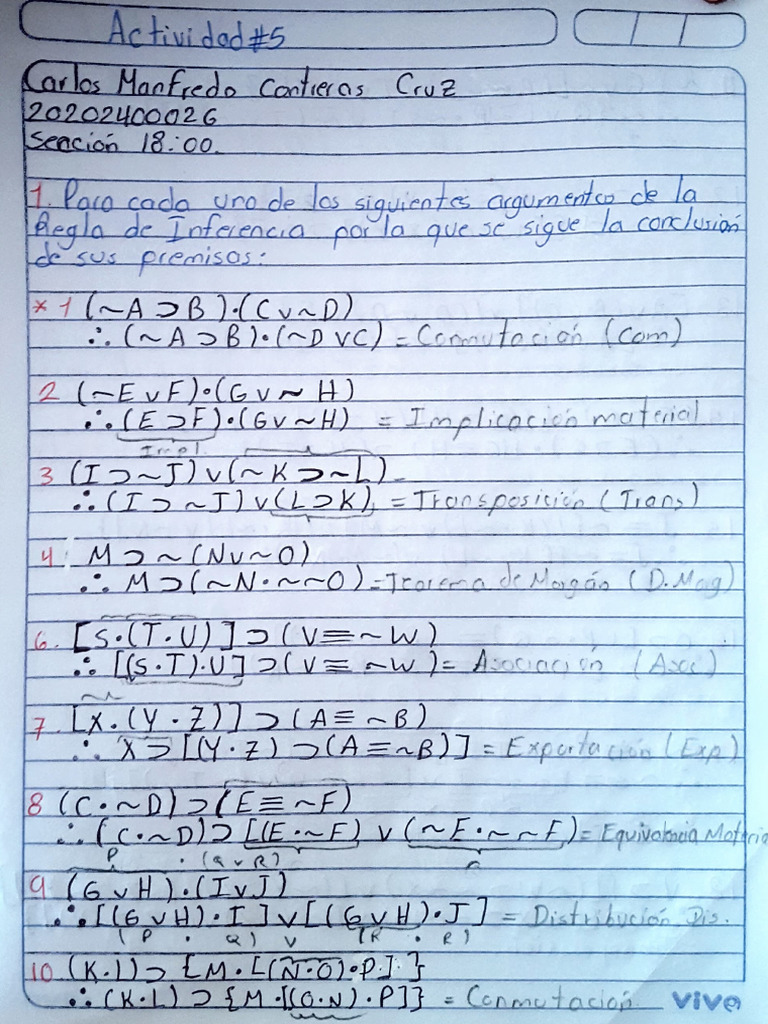 Actividad #5
Carlos Manfredo Contreras Cruz
20202400026
Sección 18:00.
1. Para cada uno de los siguientes argumentos de la
Regla de Inferencia por la que se sigue la conclusión
de sus premisas:
* 1 (~A ⊃ B)·(C v ~D)
∴ (~A ⊃ B)·(~D v C) = Conmutación (Com)
2 (~E v F)·(G v ~ H)
∴ (E ⊃ F)·(G v ~H) = Implicación material
Impl.
3 (I ⊃ ~J) v (~K ⊃ ~L)
∴ (I ⊃ ~J) v (L ⊃ K) = Transposición (Trans)
4 M ⊃ ~(N v ~O)
∴ M ⊃ (~N · ~~O) = Teorema de Morgán (D.Mog)
6. [S·(T·U)] ⊃ (V ≡ ~W)
∴ [(S·T)·U] ⊃ (V ≡ ~W) = Asociación (Asoc)
7 [X·(Y·Z)] ⊃ (A ≡ ~B)
∴ X ⊃ [(Y·Z) ⊃ (A ≡ ~B)] = Exportación (Exp)
8 (C·~D) ⊃ (E ≡ ~F)
∴ (C·~D) ⊃ [(E·~F) v (~E·~~F) = Equivalencia Materia
P · (Q v R)
9 (G v H)·(I v J)
∴ [(G v H)·I] v [(G v H)·J] = Distribución Dis.
(P · Q) v (R · R)
10 (K·L) ⊃ {M·[(N·O)·P]}
∴ (K·L) ⊃ {M·[(O·N)·P]} = Conmutación
vivo